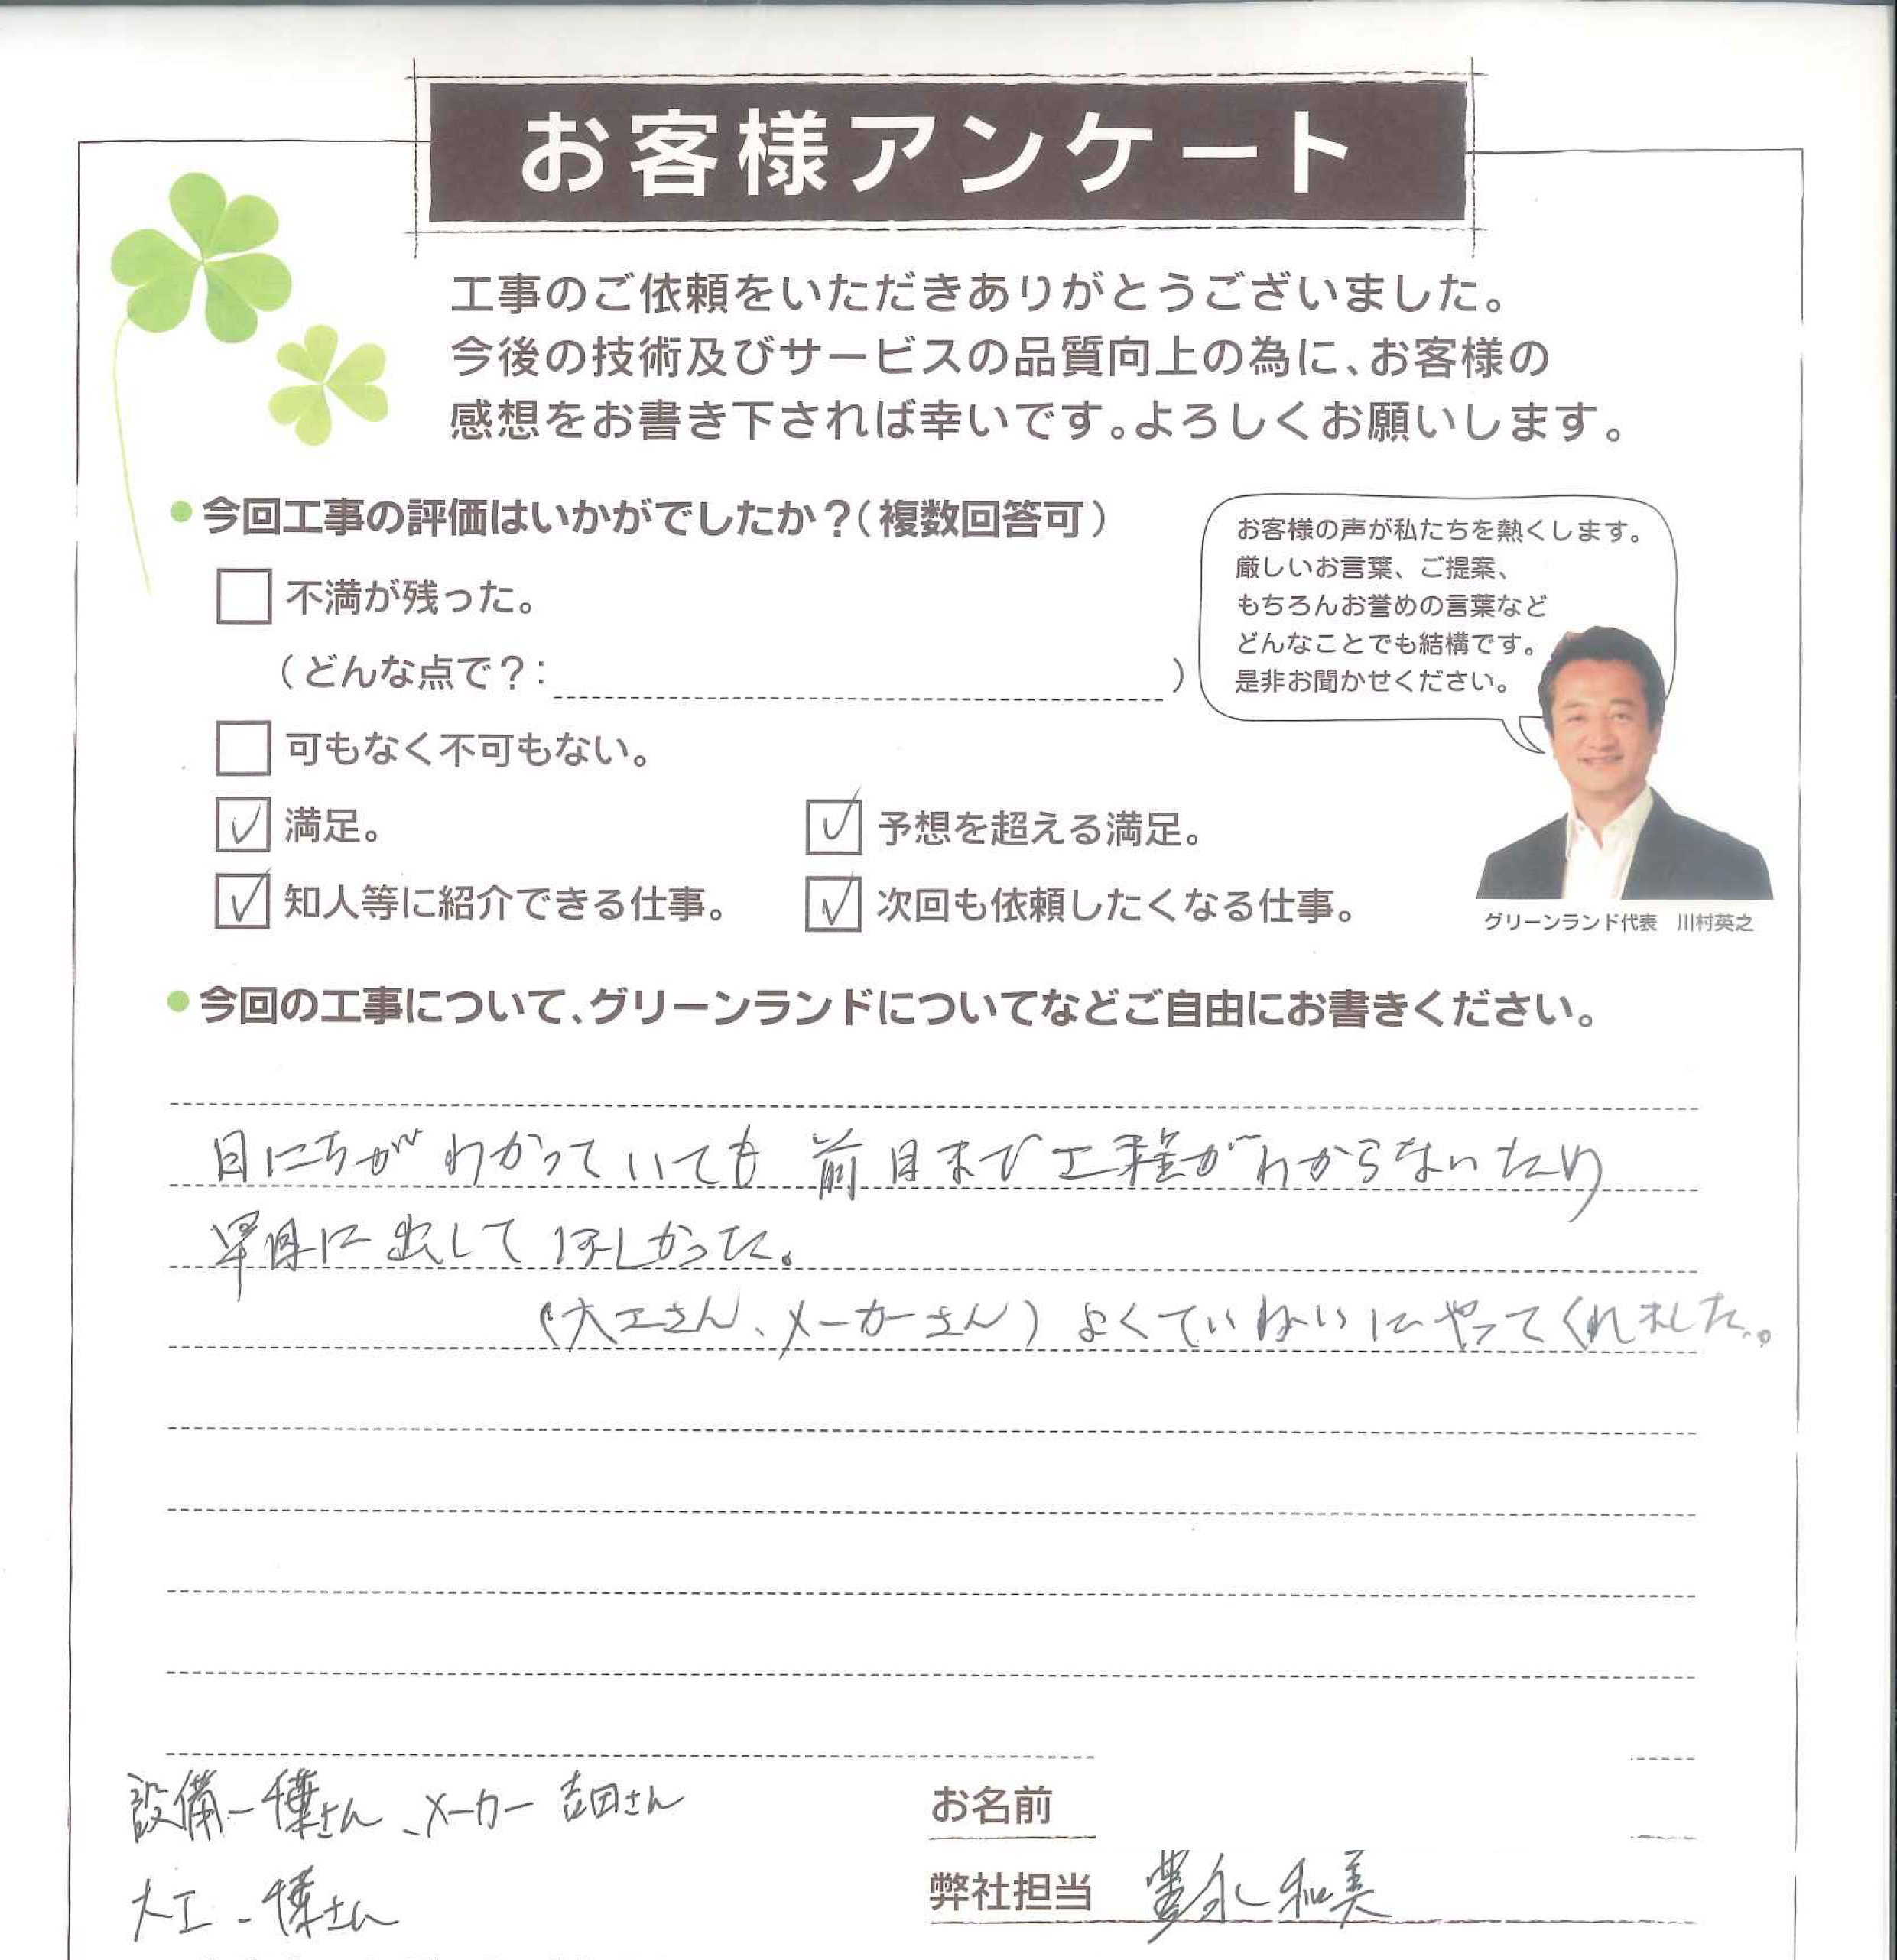 お客様アンケート
工事のご依頼をいただきありがとうございました。
今後の技術及びサービスの品質向上の為に、お客様の
感想をお書き下されば幸いです。よろしくお願いします。
今回工事の評価はいかがでしたか？（複数回答可）
不満が残った。
（どんな点で？： ）
可もなく不可もない。
満足。 予想を超える満足。
知人等に紹介できる仕事。 次回も依頼したくなる仕事。
お客様の声が私たちを熱くします。
厳しいお言葉、ご提案、
もちろんお誉めの言葉など
どんなことでも結構です。
是非お聞かせください。
グリーンランド代表 川村英之
今回の工事について、グリーンランドについてなどご自由にお書きください。
日にちがわかっていても前日まで工程がわからないたり
早目に出してほしかった。
（大工さん、メーカーさん）よくていねいにやってくれました。
設備ー さん、メーカー 吉田さん
大工ー さん
お名前
弊社担当 豊永 和美